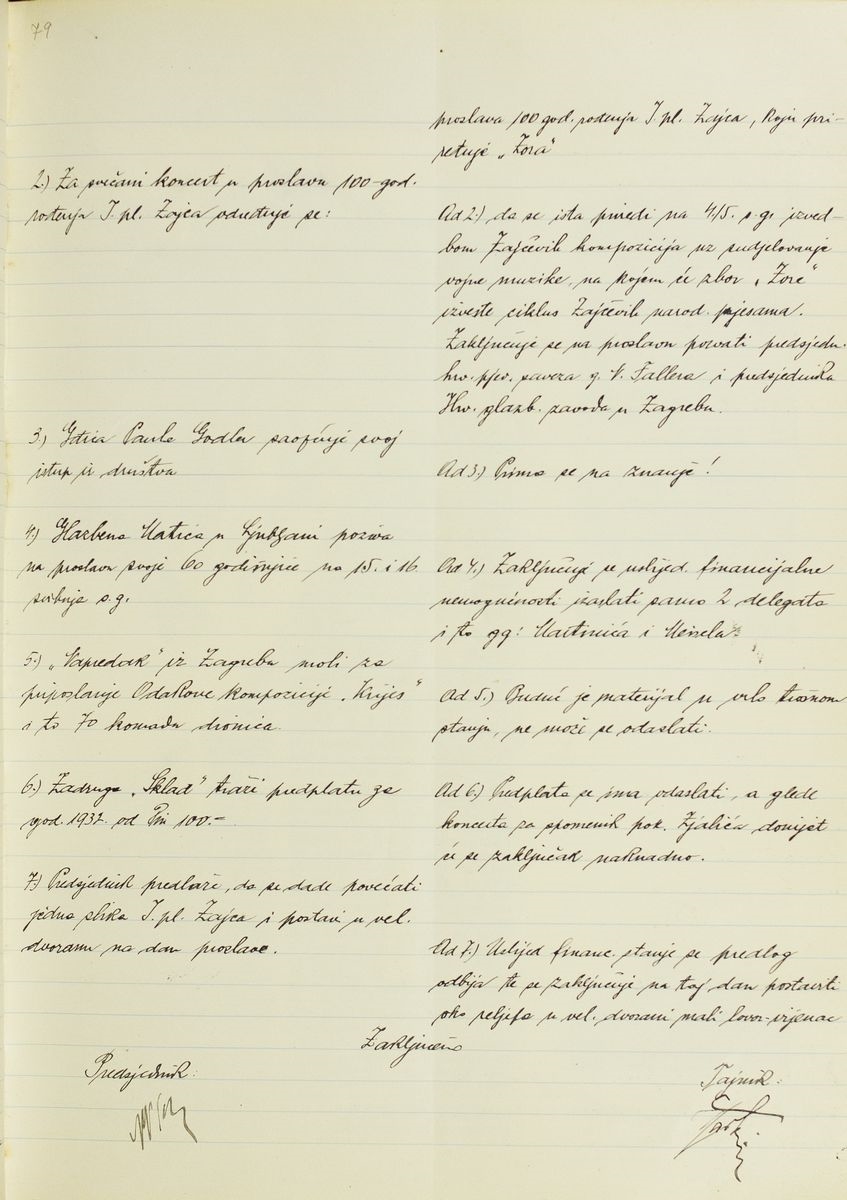 79
2.) Za svečani koncert u proslavu 100-god.
rođenja I. pl. Zajca određuje se:
3.) Gđica Paula Godler saopćuje svoj
istup iz društva
4.) Glazbena Matica u Ljubljani poziva
na proslavu svoje 60 godišnjice na 15. i 16.
svibnja s.g.
5.) „Napredak" iz Zagreba moli za
priposlanje Odakove kompozicije „Krijes"
i to 70 komada dionica.
6.) Zadruga „Sklad" traži predplatu za
god. 1932. od Din 100.-
7.) Predsjednik predlaže, da se dade povećati
jedna slika I. pl. Zajca i postavi u vel.
dvoranu na dan proslave.
proslava 100 god. rođenja I. pl. Zajca, koju pri-
ređuje „Zora"
Ad 2.) da se ista priredi na 4./5. s.g. izved-
bom Zajčevih kompozicija uz sudjelovanje
vojne muzike, na kojem će zbor „Zore"
izvesti ciklus Zajčevih narod. pjesama.
Zaključuje se na proslavu pozvati predsjedn.
hrv. pjev. saveza g. V. Fallera i predsjednika
Hrv. glazb. zavoda u Zagrebu.
Ad 3.) Prima se na znanje!
Ad 4.) Zaključuje se uslijed financijalne
nemogućnosti izaslati samo 2 delegata
i to gg: Martinića i
Ad 5.) Budući je materijal u vrlo trošnom
stanju, ne može se odaslati.
Ad 6.) Predplata se ima odaslati, a glede
koncerta za spomenik pok. Zjalića donijet
će se zaključak naknadno.
Ad 7.) Uslijed financ. stanja se predlog
odbija te se zaključuje na taj dan postaviti
oko reljefa u vel. dvorani mali lovor-vijenac
Zaključeno
Predsjednik:
Tajnik: